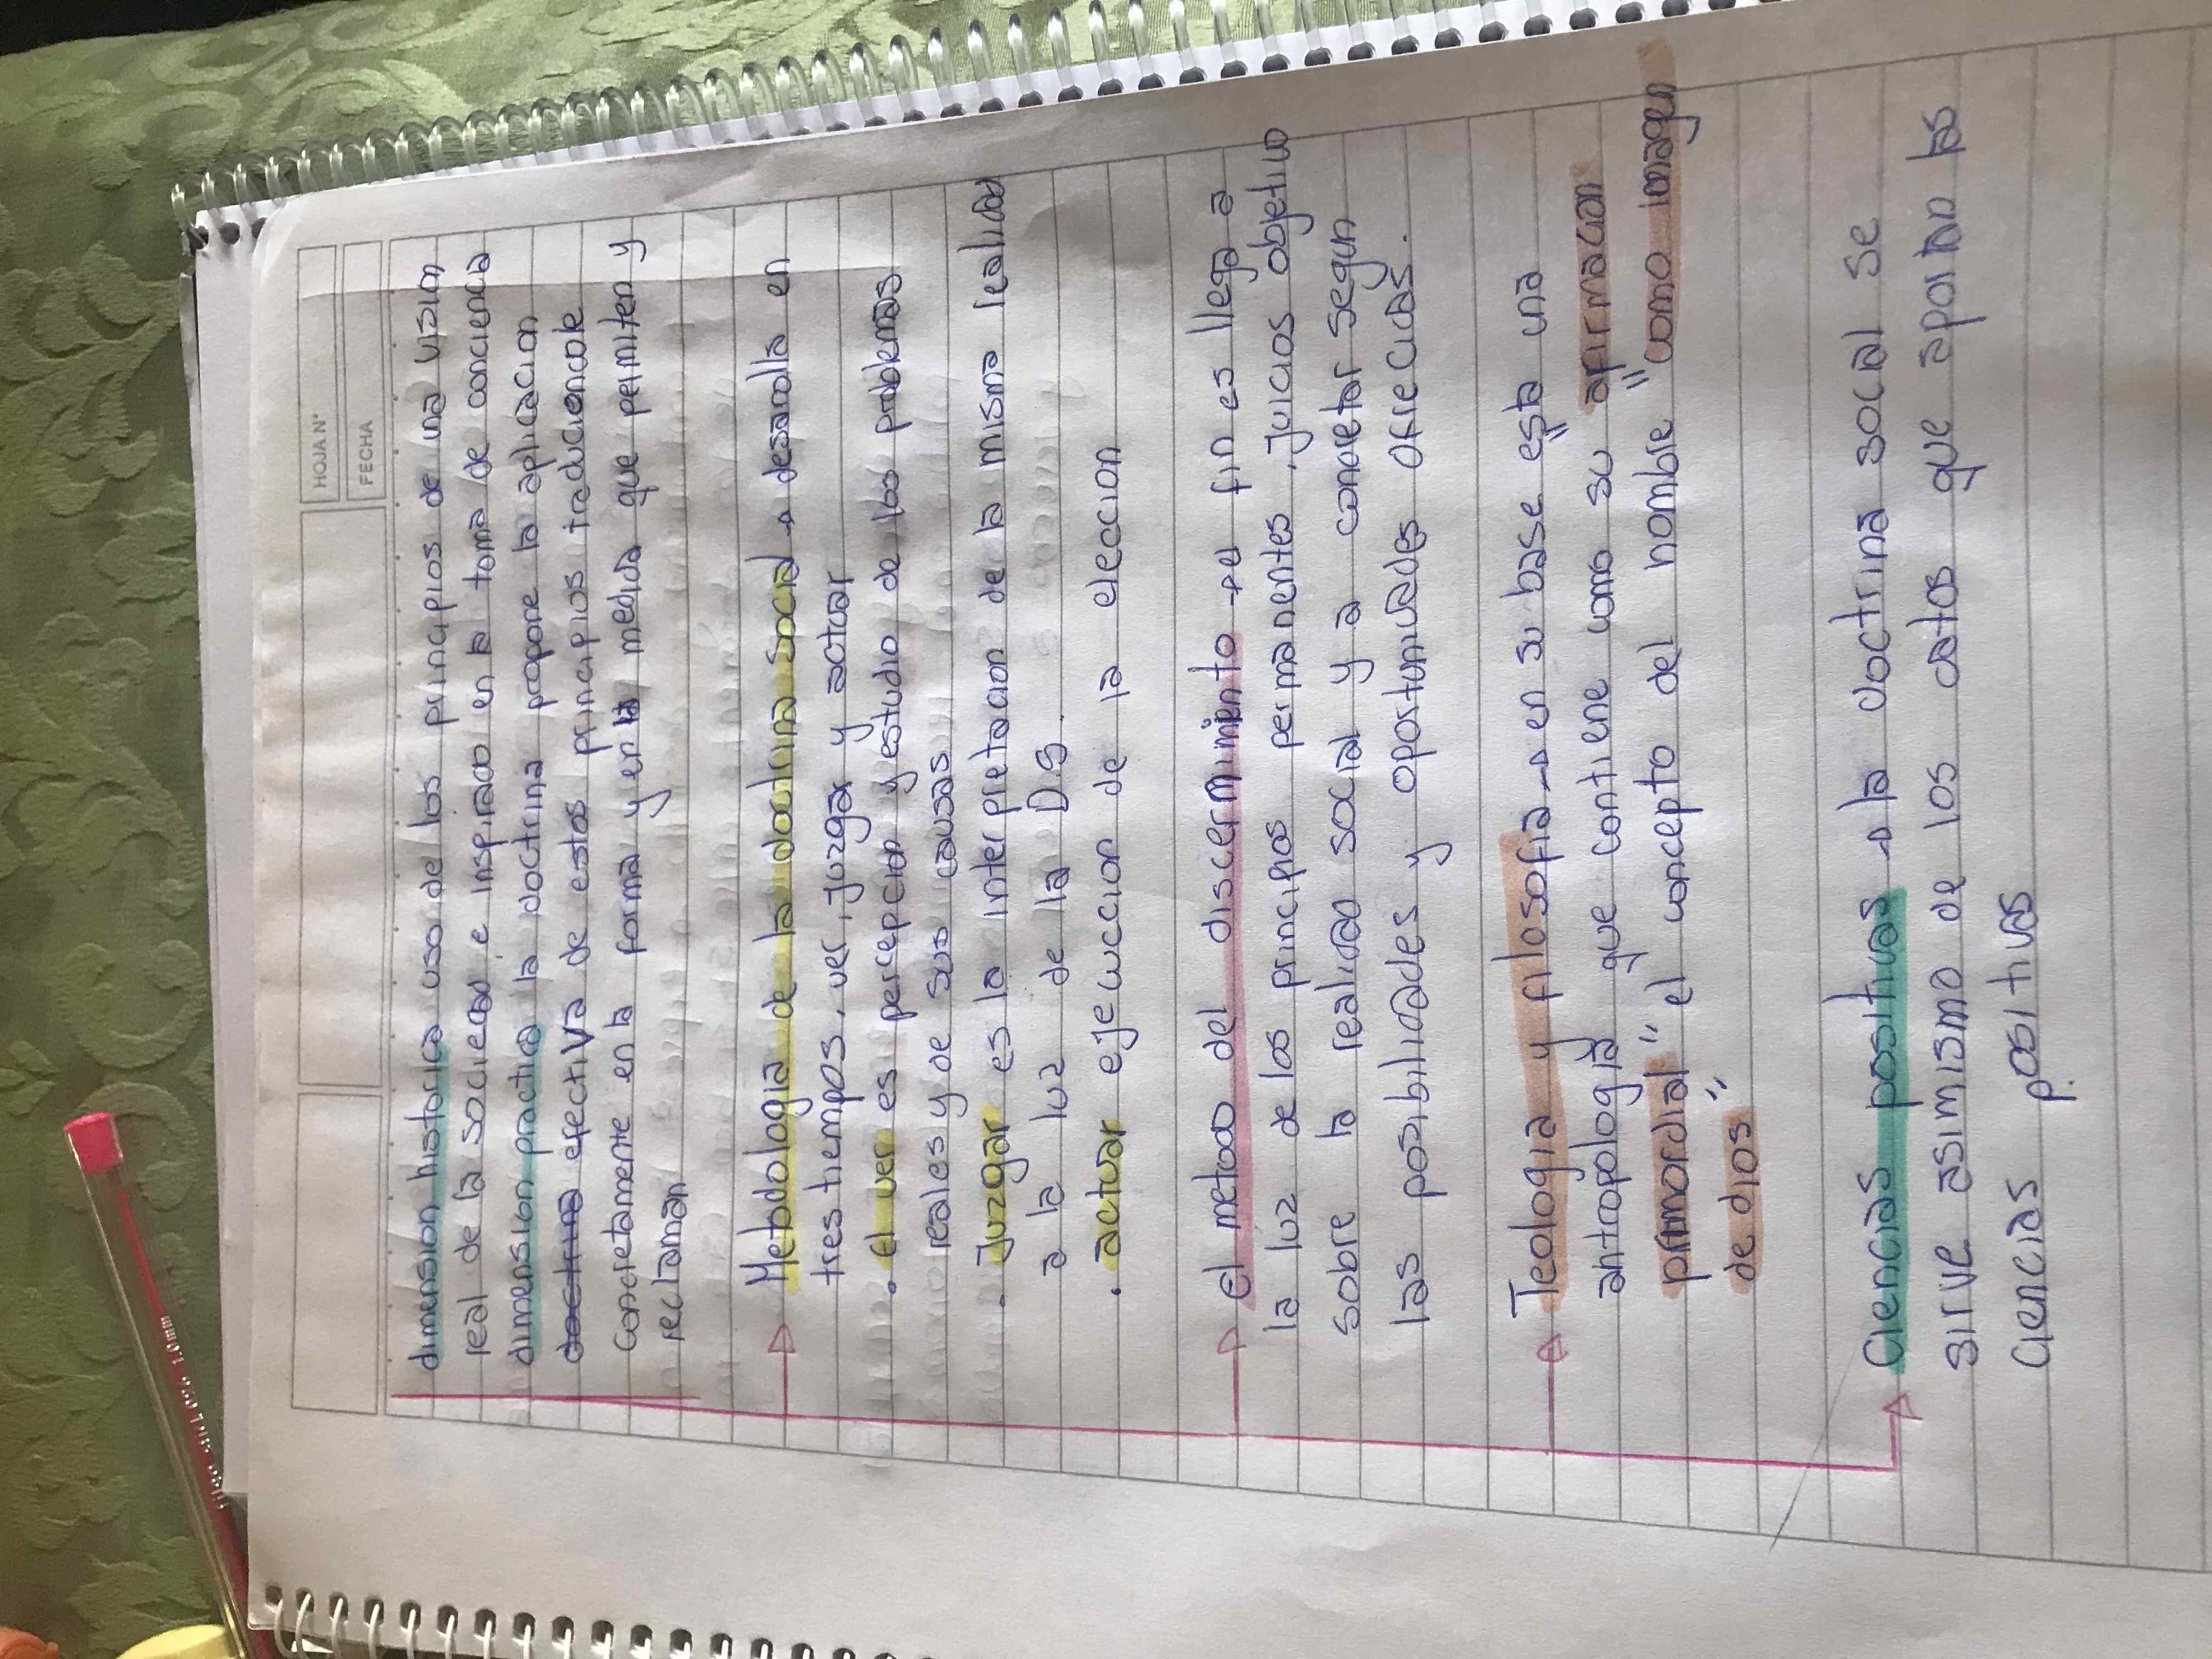 HOJA N°
FECHA
dimension historica uso de los principios de una vision
real de la sociedad e inspirado en la toma de conciencia
dimension practica la doctrina propone la aplicacion
doctrina efectiva de estos principios traduciendole
concretamente en la forma y en la medida que permiten y
reclaman
Metodologia de la doctrina social → desarolla en
tres tiempos, ver, juzgar y actuar
. El ver es percepcion y estudio de los problemas
reales y de sus causas
. Juzgar es la interpretacion de la misma realidad
a la luz de la D.S.
. actuar ejecuccion de la eleccion
El metodo del discermimiento → el fin es llega a
la luz de los principios permanentes, juicios objetivo
sobre la realidad social y a concretar segun
las posibilidades y oportunidades ofrecidas.
Teologia y filosofia → en su base esta una
antropologia que contiene como su "afirmacion
primordial" el concepto del nombre "como imagen
de dios"
Ciencias positivas → la doctrina social se
sirve asimismo de los datos que aportan las
ciencias positivas